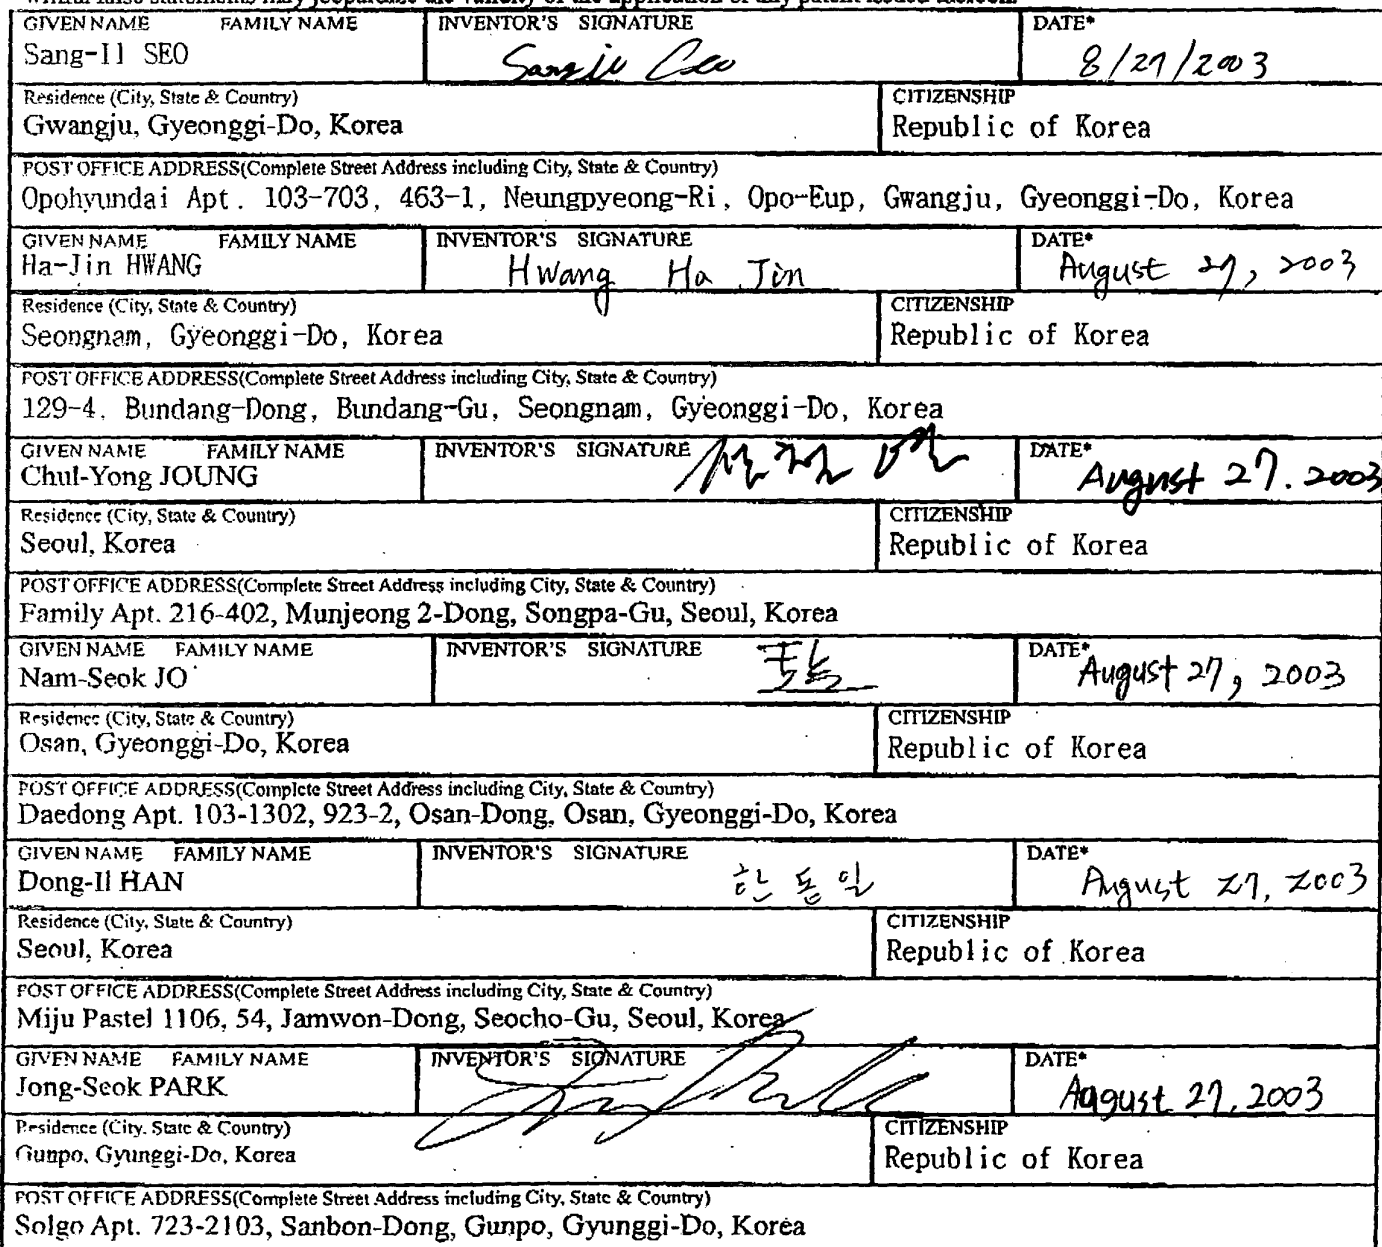 GIVEN NAME FAMILY NAME INVENTOR'S SIGNATURE DATE*
Sang-Il SEO 8/27/2003
Residence (City, State & Country) CITIZENSHIP
Gwangju, Gyeonggi-Do, Korea Republic of Korea
POST OFFICE ADDRESS(Complete Street Address including City, State & Country)
Opohyundai Apt. 103-703, 463-1, Neungpyeong-Ri, Opo-Eup, Gwangju, Gyeonggi-Do, Korea
GIVEN NAME FAMILY NAME INVENTOR'S SIGNATURE DATE*
Ha-Jin HWANG Hwang Ha Jin August 27, 2003
Residence (City, State & Country) CITIZENSHIP
Seongnam, Gyeonggi-Do, Korea Republic of Korea
POST OFFICE ADDRESS(Complete Street Address including City, State & Country)
129-4, Bundang-Dong, Bundang-Gu, Seongnam, Gyeonggi-Do, Korea
GIVEN NAME FAMILY NAME INVENTOR'S SIGNATURE DATE*
Chul-Yong JOUNG August 27. 2003
Residence (City, State & Country) CITIZENSHIP
Seoul, Korea Republic of Korea
POST OFFICE ADDRESS(Complete Street Address including City, State & Country)
Family Apt. 216-402, Munjeong 2-Dong, Songpa-Gu, Seoul, Korea
GIVEN NAME FAMILY NAME INVENTOR'S SIGNATURE DATE*
Nam-Seok JO August 27, 2003
Residence (City, State & Country) CITIZENSHIP
Osan, Gyeonggi-Do, Korea Republic of Korea
POST OFFICE ADDRESS(Complete Street Address including City, State & Country)
Daedong Apt. 103-1302, 923-2, Osan-Dong, Osan, Gyeonggi-Do, Korea
GIVEN NAME FAMILY NAME INVENTOR'S SIGNATURE DATE*
Dong-Il HAN 한동일 August 27, 2003
Residence (City, State & Country) CITIZENSHIP
Seoul, Korea Republic of Korea
POST OFFICE ADDRESS(Complete Street Address including City, State & Country)
Miju Pastel 1106, 54, Jamwon-Dong, Seocho-Gu, Seoul, Korea
GIVEN NAME FAMILY NAME INVENTOR'S SIGNATURE DATE*
Jong-Seok PARK August 27, 2003
Residence (City, State & Country) CITIZENSHIP
Gunpo, Gyunggi-Do, Korea Republic of Korea
POST OFFICE ADDRESS(Complete Street Address including City, State & Country)
Solgo Apt. 723-2103, Sanbon-Dong, Gunpo, Gyunggi-Do, Korea